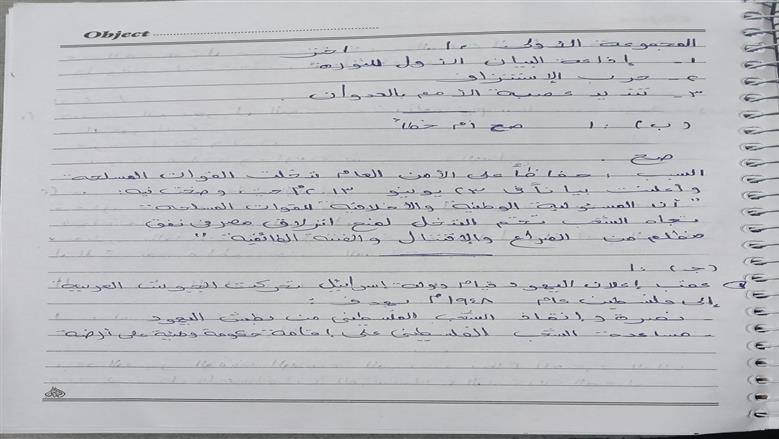 Object
المجموعة الأولى ١٠ اختر
١- إذاعة البيان الأول للثورة
٢- حرب الإستنزاف
٣- تنديد عصبة الأمم بالعدوان.
(ب) ١: صح أم خطأ
صح.
السبب: حفاظاً على الأمن العام تدخلت القوات المسلحة
وأعلنت بياناً فى ٢٣ يونيو ٢٠١٣م حيث وضحت فيه:
" أن المسئولية الوطنية والأخلاقية للقوات المسلحة
تجاه الشعب تحتم التدخل لمنع انزلاق مصر فى نفق
مظلم من الصراع والإقتتال والفتنة الطائفية "
(جـ) ١:
عقب إعلان اليهود قيام دولة اسرائيل تحركت الجيوش العربية
إلى فلسطين عام ١٩٤٨م بهدف:
- نصرة وإنقاذ الشعب الفلسطينى من بطش اليهود
- مساعدة الشعب الفلسطينى على إقامة حكومة وطنية على أرضه